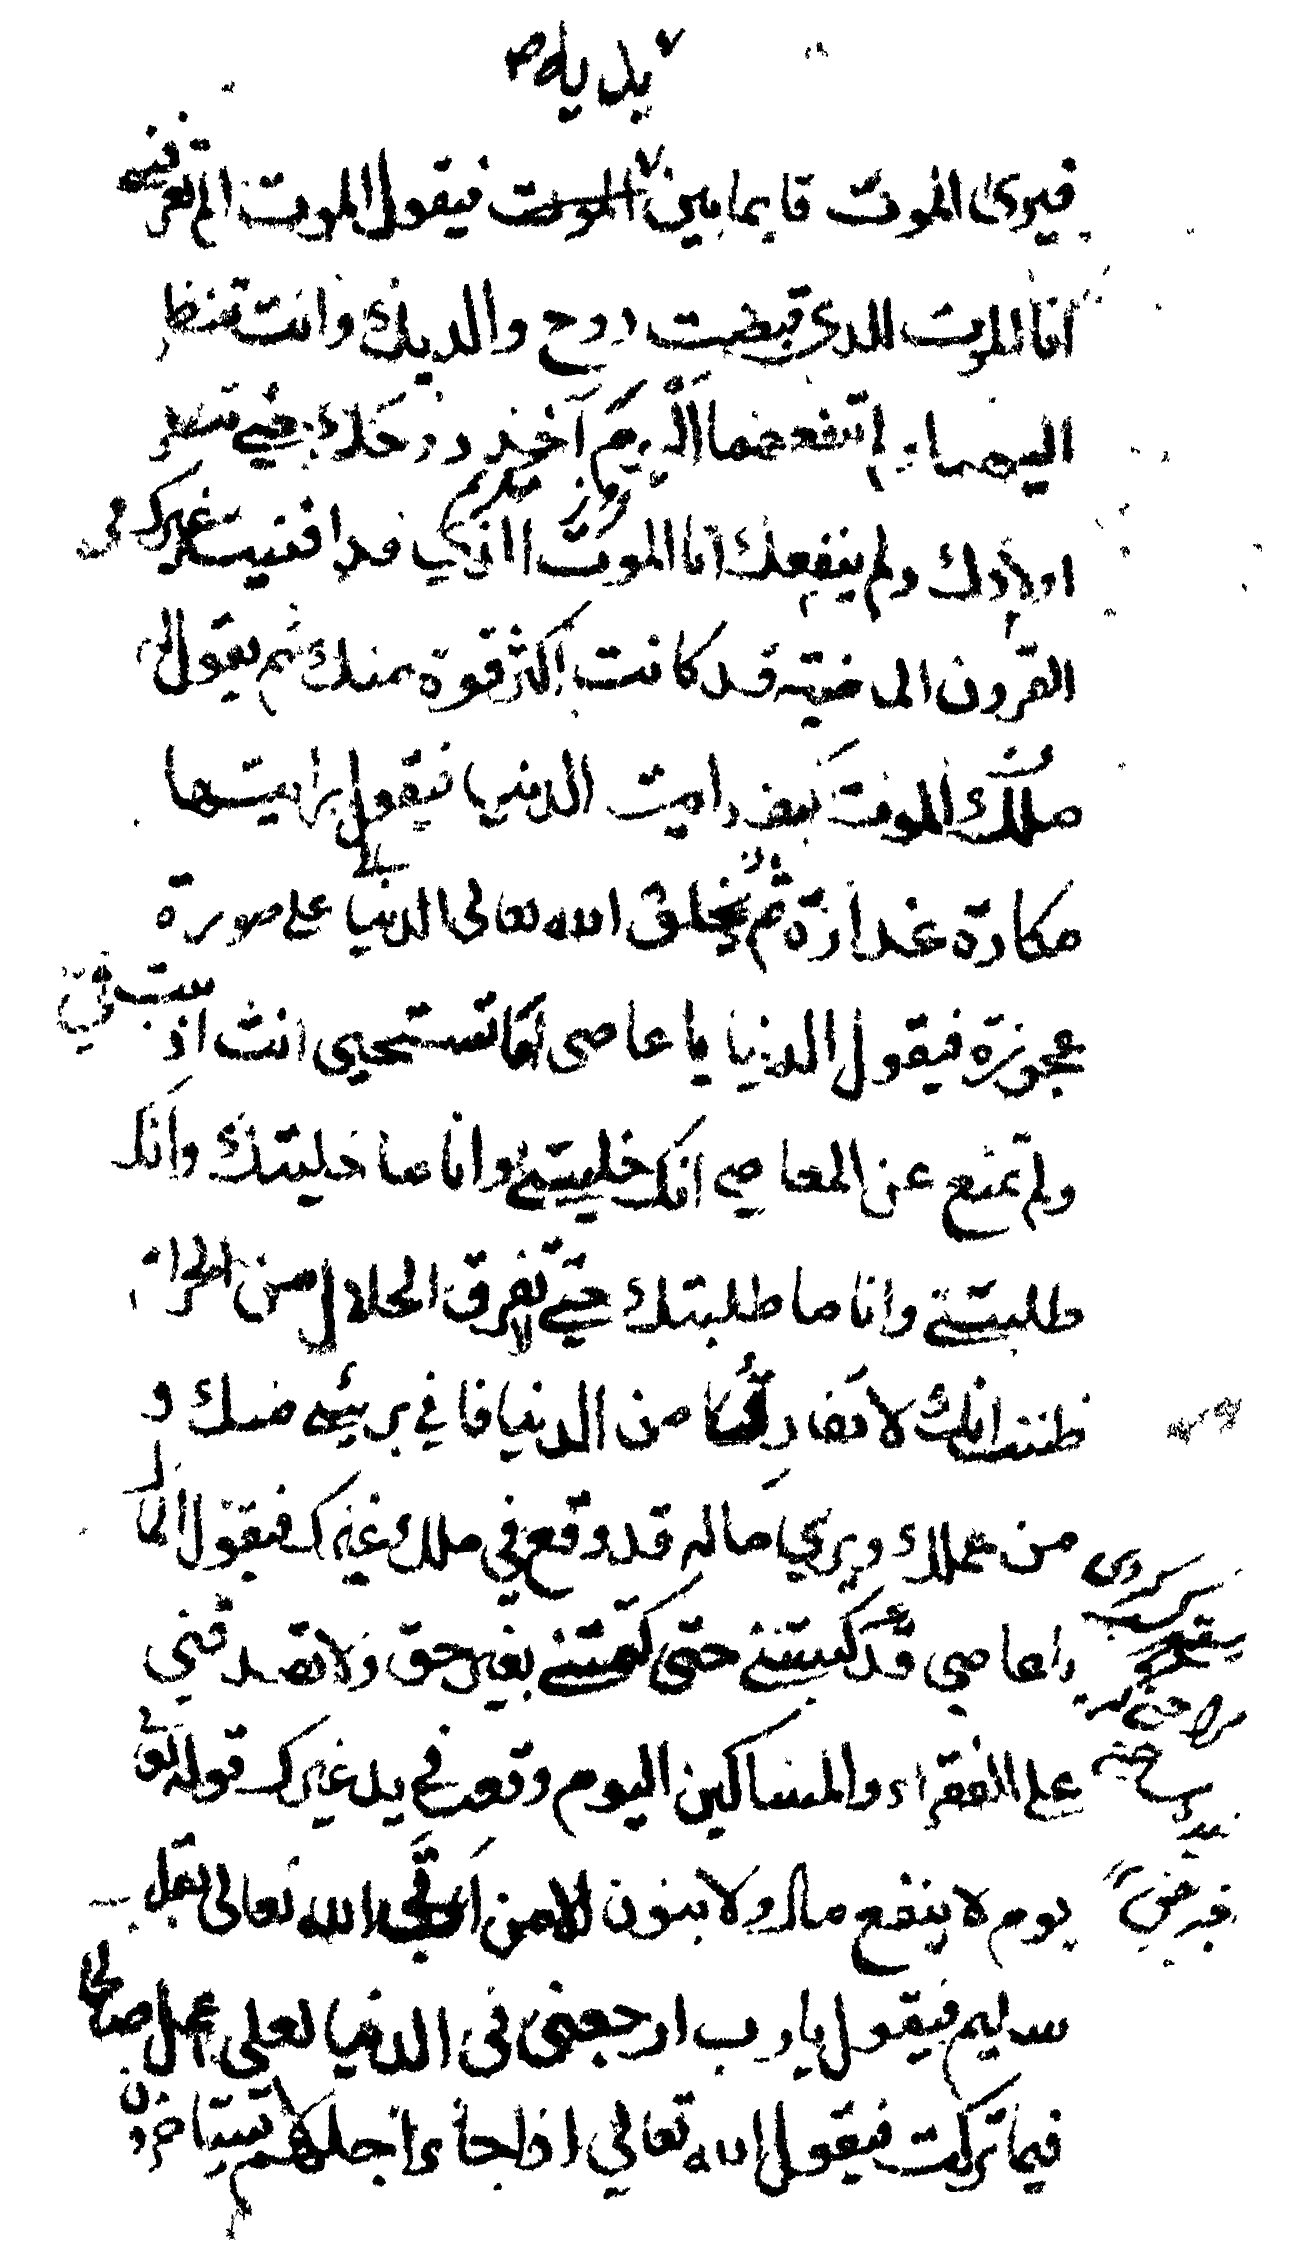 يديه
فيرى الموت قايما بين الموت فيقول الموت الم تعرفنى
انا الموت الدى قبضت روح والديك وانت تنظر
اليهما ولم تنفعهما اليوم آخذ روحك حتى تنظر
اولادك ولم ينفعك انا الموت الذي قد افنيت غيرك فى
القرون الماضية قد كانت اكثر قوة منك ثم يقول له
ملك الموت كيف رايت الدنيا فيقول رايتها
مكارة غدارة ثم يخلق الله تعالى الدنيا على صورة
عجوزة فيقول الدنيا يا عاصى اما تستحيى انت اذنبت في
ولم تمنع عن المعاصي انك خليتنى وانا ما خليتك وانك
طلبتنى وانا ما طلبتك حتى لا تفرق الحلال من الحرام
ظننت انك لا تفارق من الدنيا فاني بريئة منك و
من عملك ويرى ماله قد وقع في ملك غيرك فيقول المال
يا عاصي قد كسبتنى حتى بغير حق ولا تصدقني
على الفقراء والمساكين اليوم وقعت في يد غيرك قوله تعالى
يوم لا ينفع مال ولا بنون الا من اتى الله تعالى بقلب
سليم فيقول يا رب ارجعنى فى الدنيا لعلى اعمل صالحا
فيما تركت فيقول الله تعالي اذا جاء اجلهم لا يستاخرون